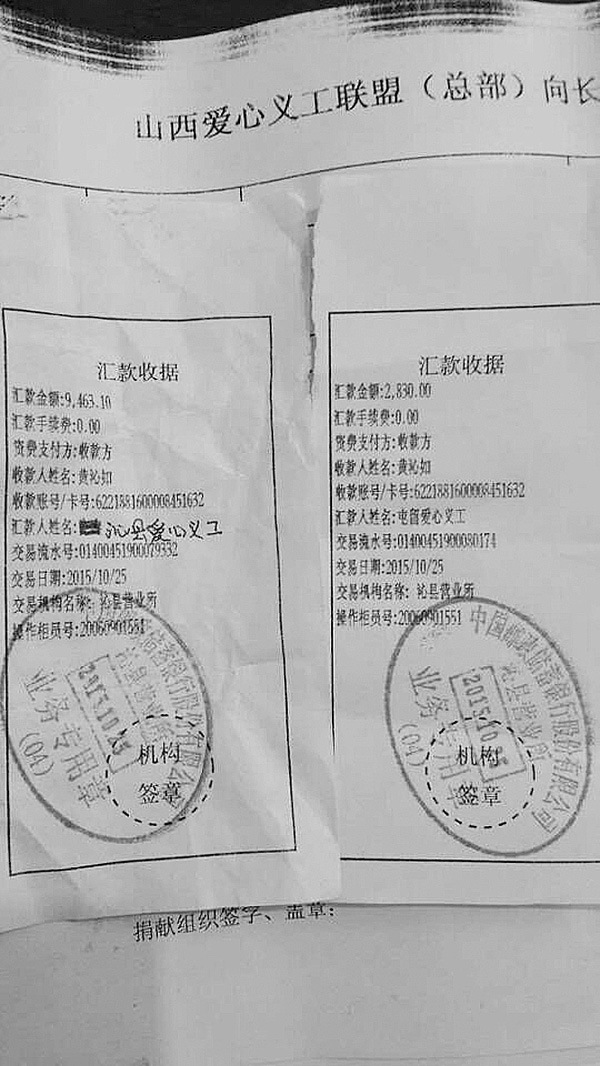 山西爱心义工联盟（总部）向长
汇款收据
汇款金额:9,463.10
汇款手续费:0.00
资费支付方:收款方
收款人姓名:黄沁如
收款账号/卡号:6221881600008451632
汇款人姓名: 沁县爱心义工
交易流水号:01400451900079332
交易日期:2015/10/25
交易机构名称: 沁县营业所
操作柜员号:20060901551
2015.10.25
业务专用章
(04)
机构
签章
汇款收据
汇款金额:2,830.00
汇款手续费:0.00
资费支付方:收款方
收款人姓名:黄沁如
收款账号/卡号:6221881600008451632
汇款人姓名:屯留爱心义工
交易流水号:01400451900080174
交易日期:2015/10/25
交易机构名称: 沁县营业所
操作柜员号:20060901551
中国邮政储蓄银行股份有限公司
沁县营业所
业务专用章
(04)
机构
签章
捐献组织签字、盖章: